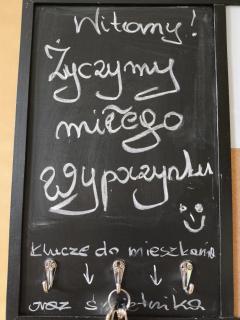 Witamy!
Życzymy
miłego
wypoczynku
klucze do mieszkania
oraz śmietnika